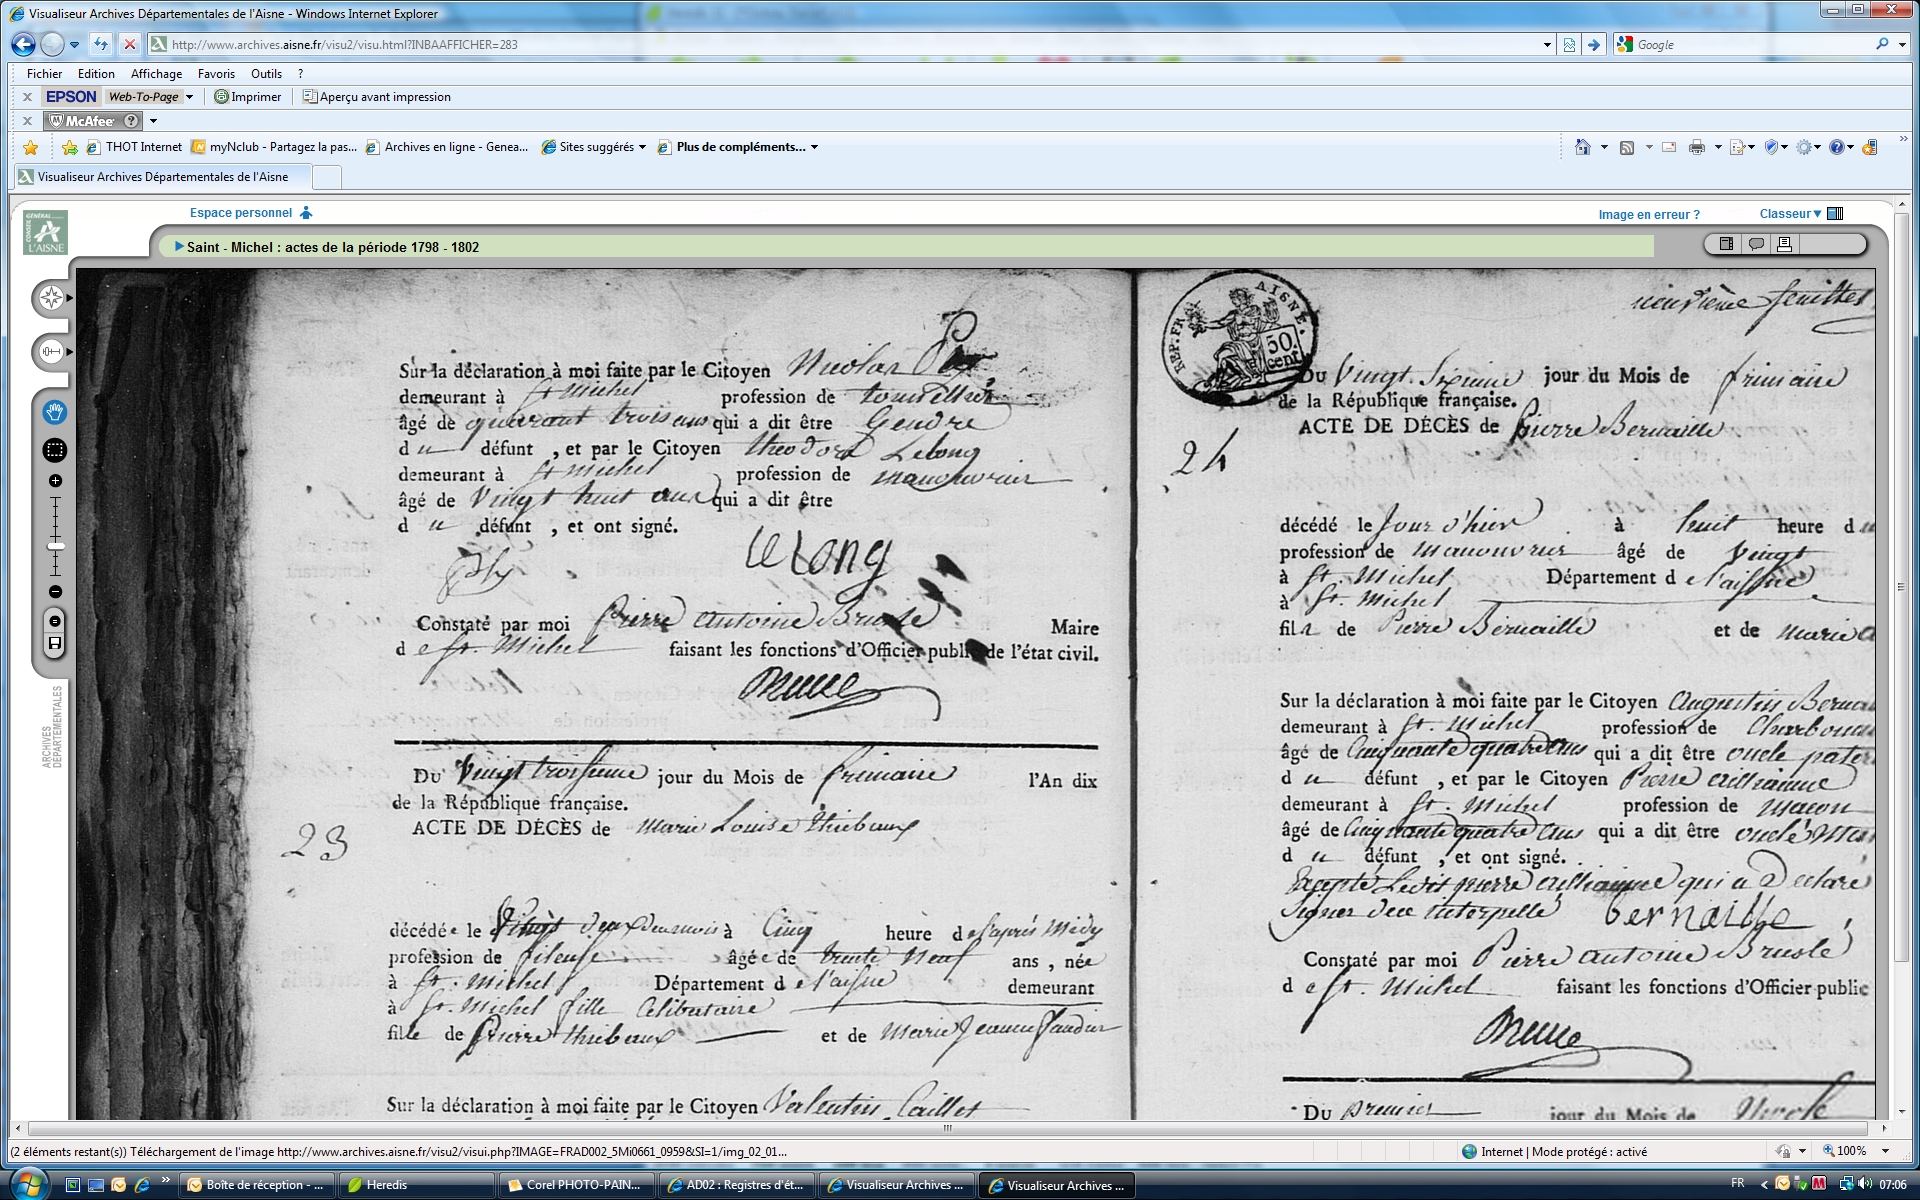 Visualiseur Archives Départementales de l'Aisne - Windows Internet Explorer
http://www.archives.aisne.fr/visu2/visu.html?INBAAFFICHER=283
Google
Fichier Edition Affichage Favoris Outils ?
x EPSON Web-To-Page Imprimer Aperçu avant impression
x McAfee ?
THOT Internet myNclub - Partagez la pas... Archives en ligne - Genea... Sites suggérés Plus de compléments...
Visualiseur Archives Départementales de l'Aisne
Espace personnel Image en erreur ? Classeur
CONSEIL GÉNÉRAL L'AISNE
Saint - Michel : actes de la période 1798 - 1802
ARCHIVES DÉPARTEMENTALES
Sur la déclaration à moi faite par le Citoyen Nicolas
demeurant à St Michel profession de
âgé de quarant trois ans qui a dit être Gendre
d u défunt , et par le Citoyen theodore Lelong
demeurant à St Michel profession de manouvrier
âgé de Vingt huit ans qui a dit être
d u défunt , et ont signé.
lelong
Constaté par moi Pierre antoine Brusle Maire
d e St. Michel faisant les fonctions d'Officier public de l'état civil.
Brusle
Du Vingt troisieme jour du Mois de frimaire l'An dix
de la République française.
23
ACTE DE DÉCÈS de Marie Louise thiebaux
décédée le Vingt deux du mois à Cinq heure de l'aprés Midy
profession de fileuse âgée de trente Neuf ans , née
à St. Michel Département de l'aisne demeurant
à St. Michel fille Celibataire
fille de Pierre thiebaux et de Marie Jeanne
Sur la déclaration à moi faite par le Citoyen Valentin Caillet
REP. FR. AISNE.
50. cent.
feuillet
Du Vingt Sixieme jour du Mois de frimaire
de la République française.
ACTE DE DÉCÈS de Pierre Bernaille
24
décédé le Jour d'hier à huit heure d
profession de manouvrier âgé de Vingt
à St. Michel Département de l'aisne
à St. Michel
fils de Pierre Bernaille et de marie
Sur la déclaration à moi faite par le Citoyen Augustin
demeurant à St. Michel profession de
âgé de Cinquante quatre ans qui a dit être oncle
d u défunt , et par le Citoyen Pierre
demeurant à St. Michel profession de macon
âgé de Cinquante quatre ans qui a dit être oncle
d u défunt , et ont signé.
Excepté Ledit pierre qui a Declaré
Signer de ce interpellé bernaille
Constaté par moi Pierre antoine Brusle
d e St. Michel faisant les fonctions d'Officier public
Brusle
Du Premier jour du Mois de Nivose
(2 éléments restant(s)) Téléchargement de l'image http://www.archives.aisne.fr/visu2/visui.php?IMAGE=FRAD002_5Mi0661_0959&SI=1/img_02_01... Internet | Mode protégé : activé 100%
Boîte de réception - ... Heredis Corel PHOTO-PAIN... AD02 : Registres d'ét... Visualiseur Archives ... Visualiseur Archives ... FR 07:06